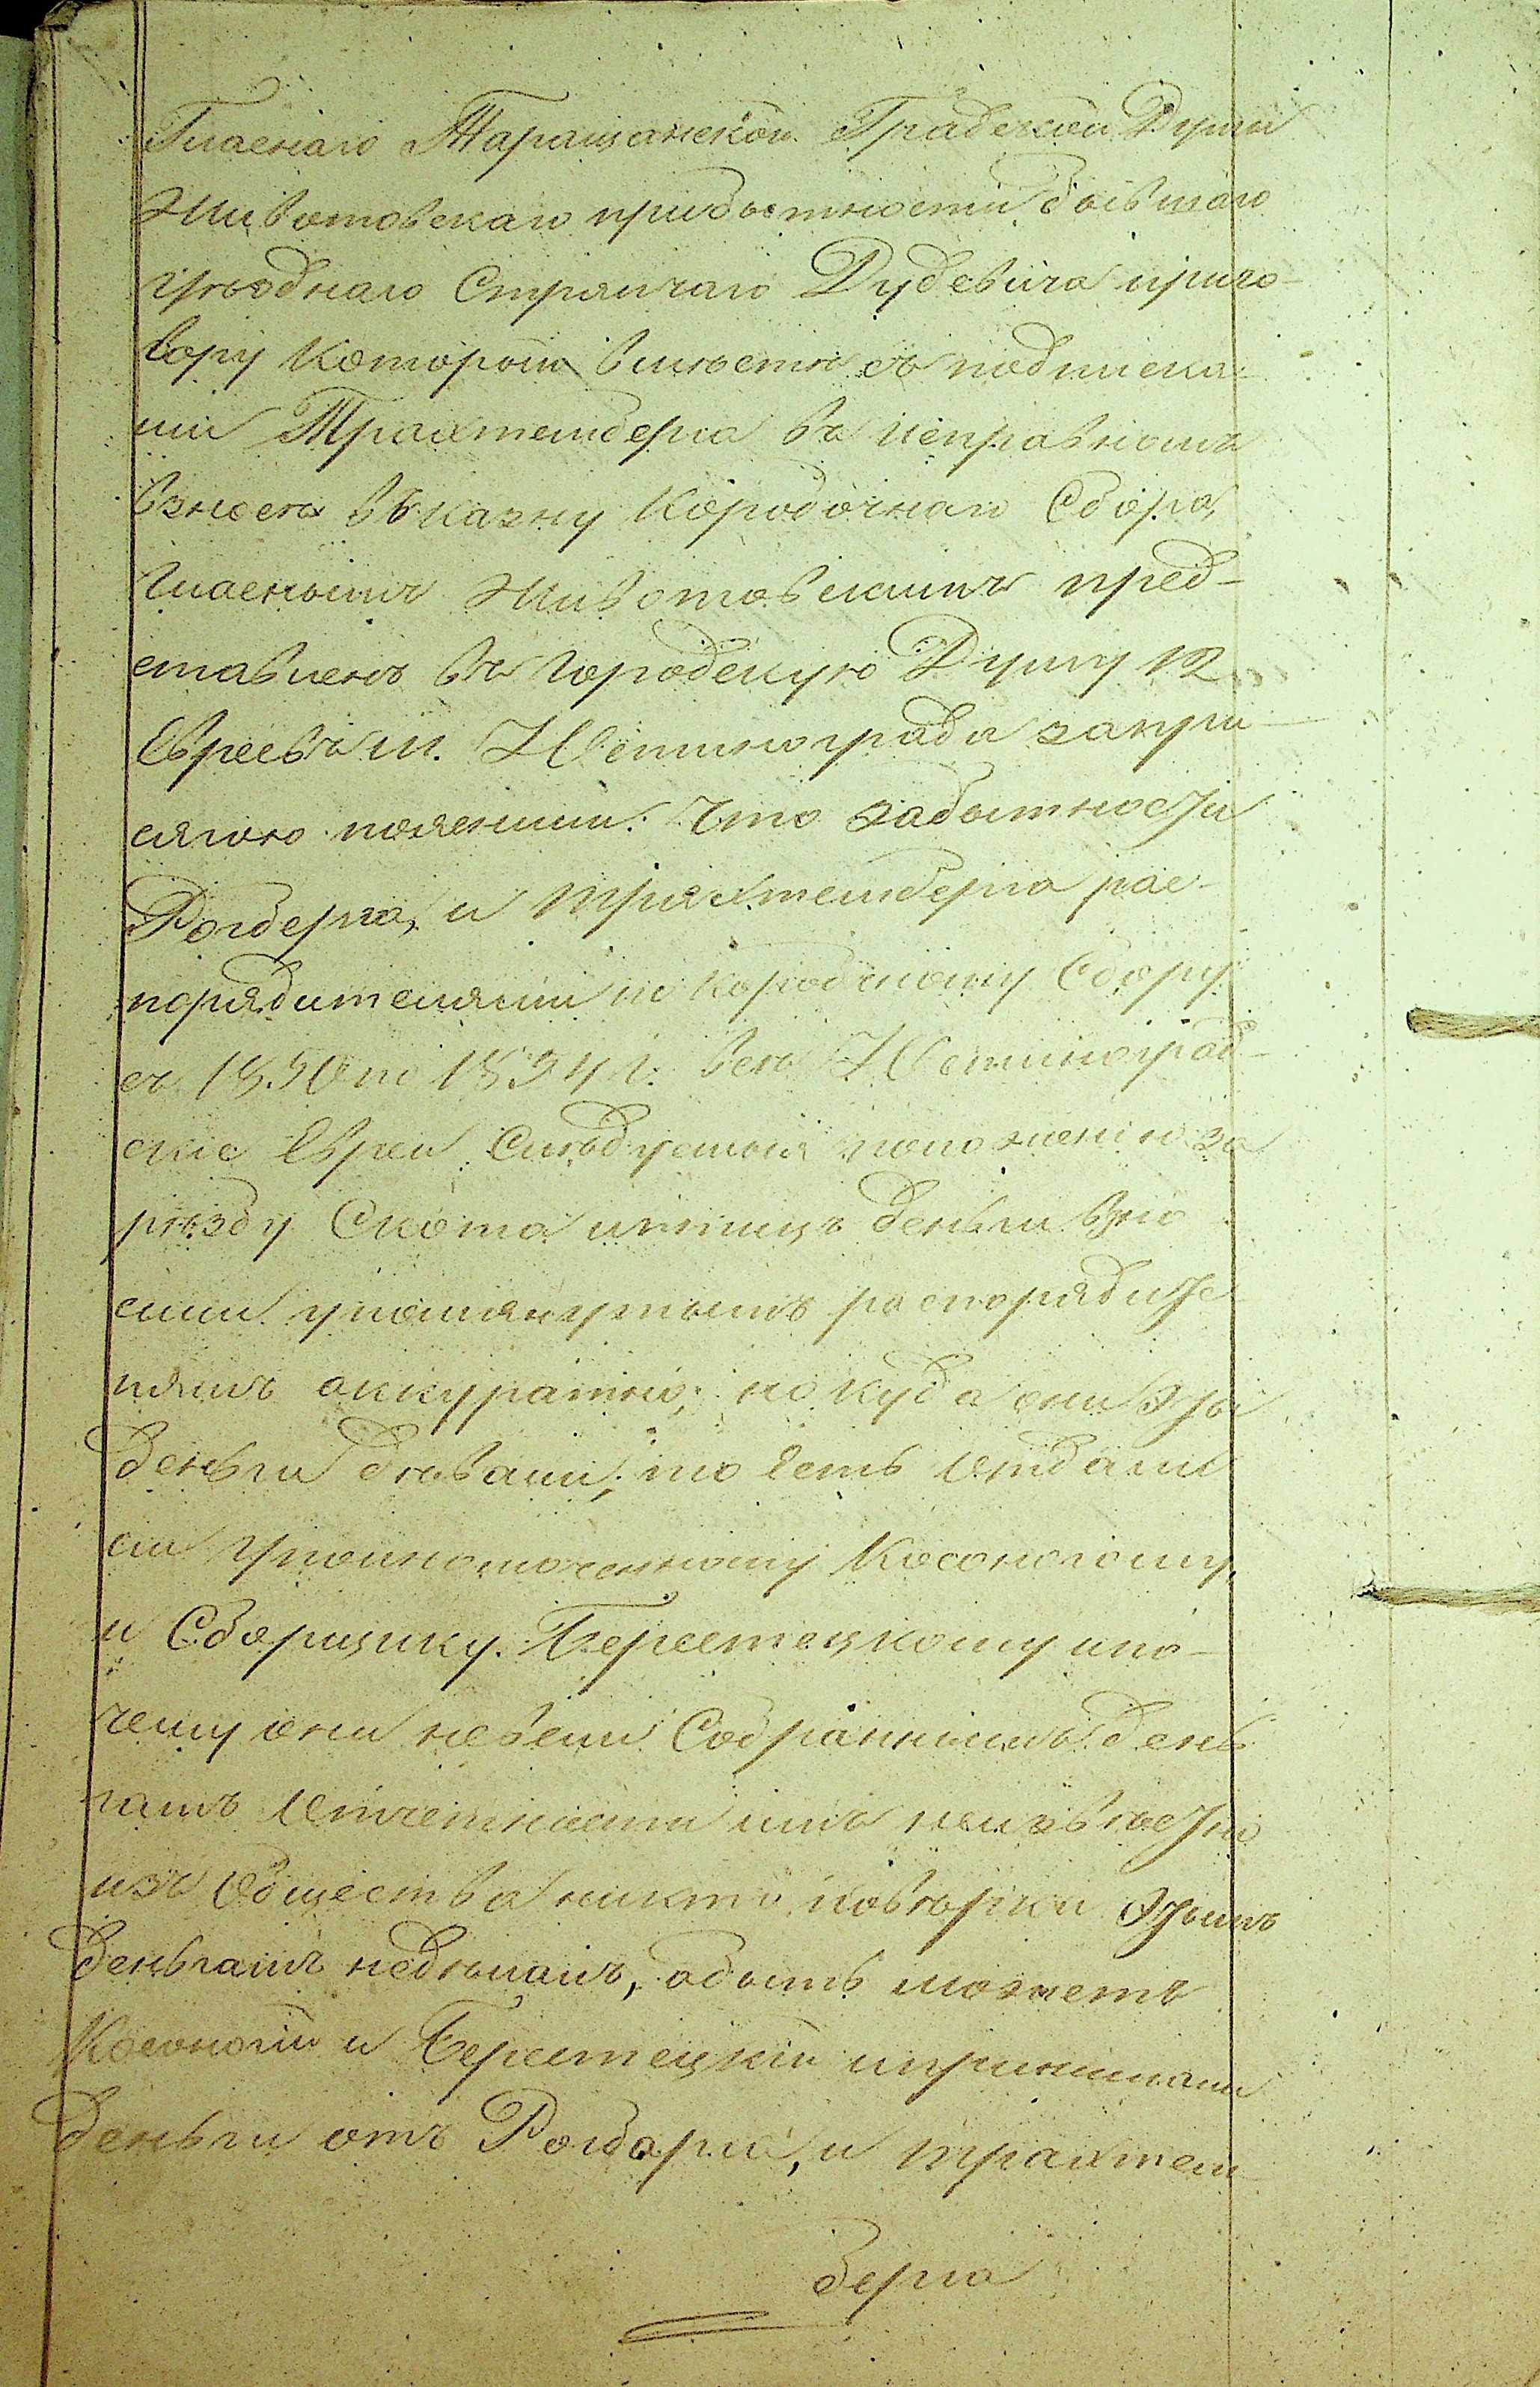 Гласнаго Таращанской Градской Думы
Животовскаго прибытности бывшаго
уѣзднаго Стряпчаго Дудевича приго-
вору который вмѣстѣ съ подписка-
ми Трахтенберга въ исправномъ
взносѣ въ казну Коробочнаго Сбора,
Гласнымъ Животовскимъ пред-
ставленъ въ Городскую Думу 12
Евреевъ м. Ювтинограда запри-
сягою пояснили: Что забытности
Рогберга, и Трахтенберга рас-
порядителями по Коробочному Сбору
съ 1850 по 1854 г. всѣ Ювтиноград-
скіе Евреи Слѣдуемыя положенію за
рѣзку Скота и птицъ деньги взно
сили упомянутымъ распорядите
лямъ аккуратно; но куда они эты
деньги дѣвали, то есть отдали
ли уполномоченному Косоногому,
и Сборщику Берестецкому и по-
чему они невели Собраннымъ день
гамъ Отчетности имъ неизвѣстно
изъ Общества никто повѣрки этымъ
деньгамъ недѣлалъ, а быть можетъ
Косоногій и Берестецкій и принимали
деньги отъ Рогберга, и трахтен-
берга